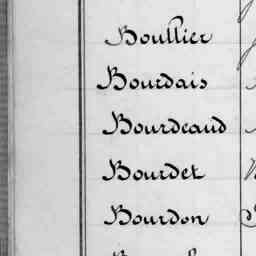 Boullier
Bourdais
Bourdeaud
Bourdet
Bourdon